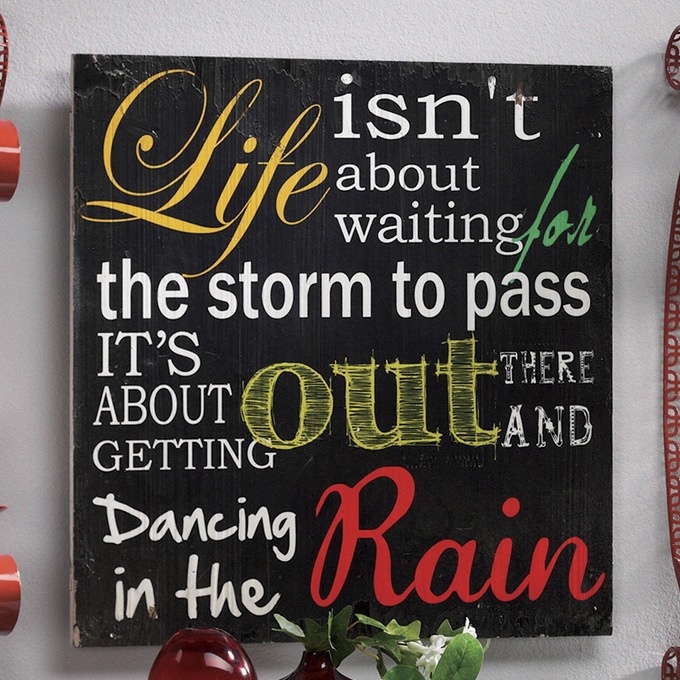 Life isn't
about
waiting for
the storm to pass
IT'S
ABOUT out THERE
GETTING AND
Dancing
in the Rain